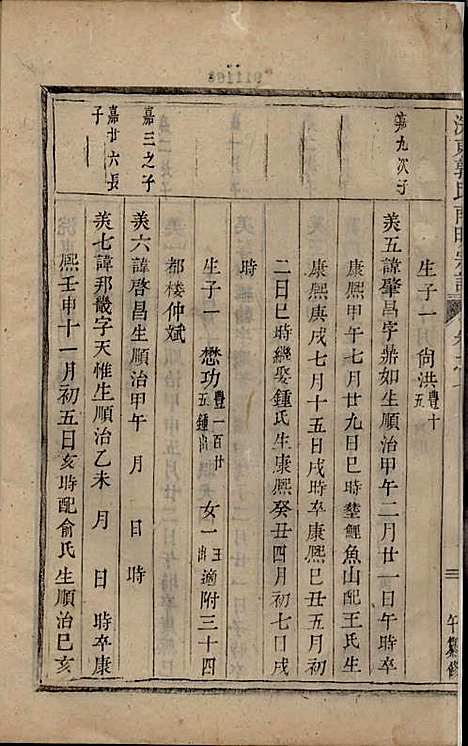 生子一曰尚洪豊十五
羙九次子
羙五諱肇昌字鼎如生順治甲午二月廿一日午時卒
康熙甲午七月廿九日巳時塟鯉魚山配王氏生
康熙庚戌七月十五日戌時卒康熙己丑五月
二日巳時繼娶鍾氏生康熙癸丑四月初七日戌
時
生子一 懋功豊一百廿五鍾出 女一王出適附三十四
都楼仲斌
嘉三之子
羙六諱啓昌生順治甲午 月 日 時
嘉廿六長子
羙七諱邦畿字天惟生順治乙未 月 日 時卒康
熙壬申十一月初五日亥時配俞氏生順治己亥
午纂修